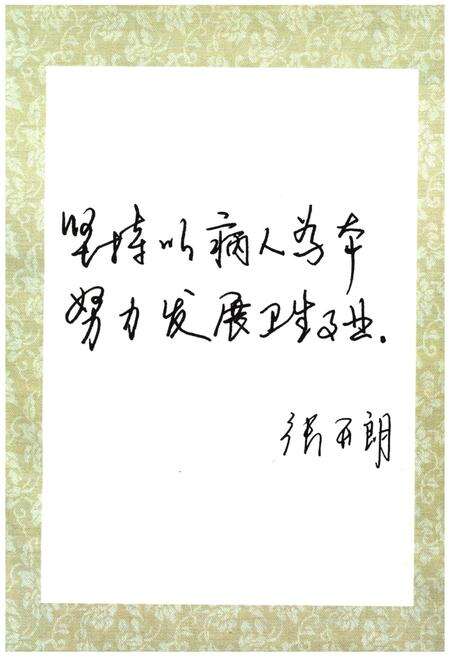 坚持以病人为本
努力发展卫生事业.
张百朗